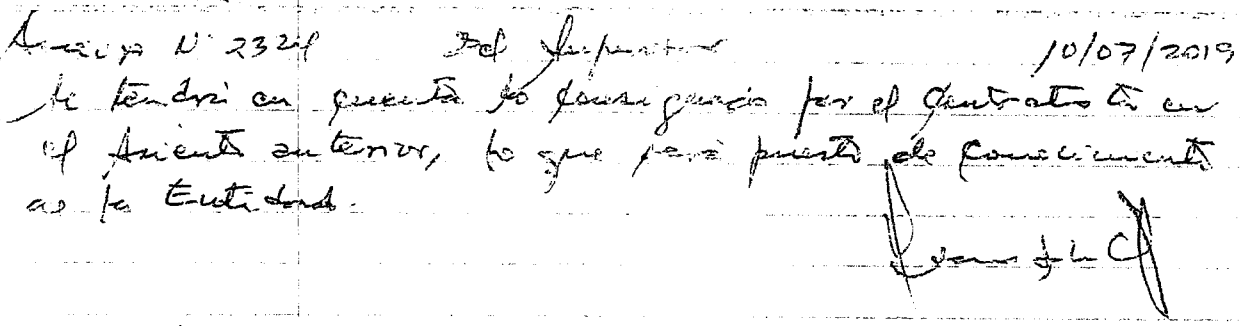 Asiento N° 2324 Del Supervisor 10/07/2019
Se tendrá en cuenta lo consignado por el Contratista en
el Asiento anterior, lo que será puesto de conocimiento
de la Entidad.